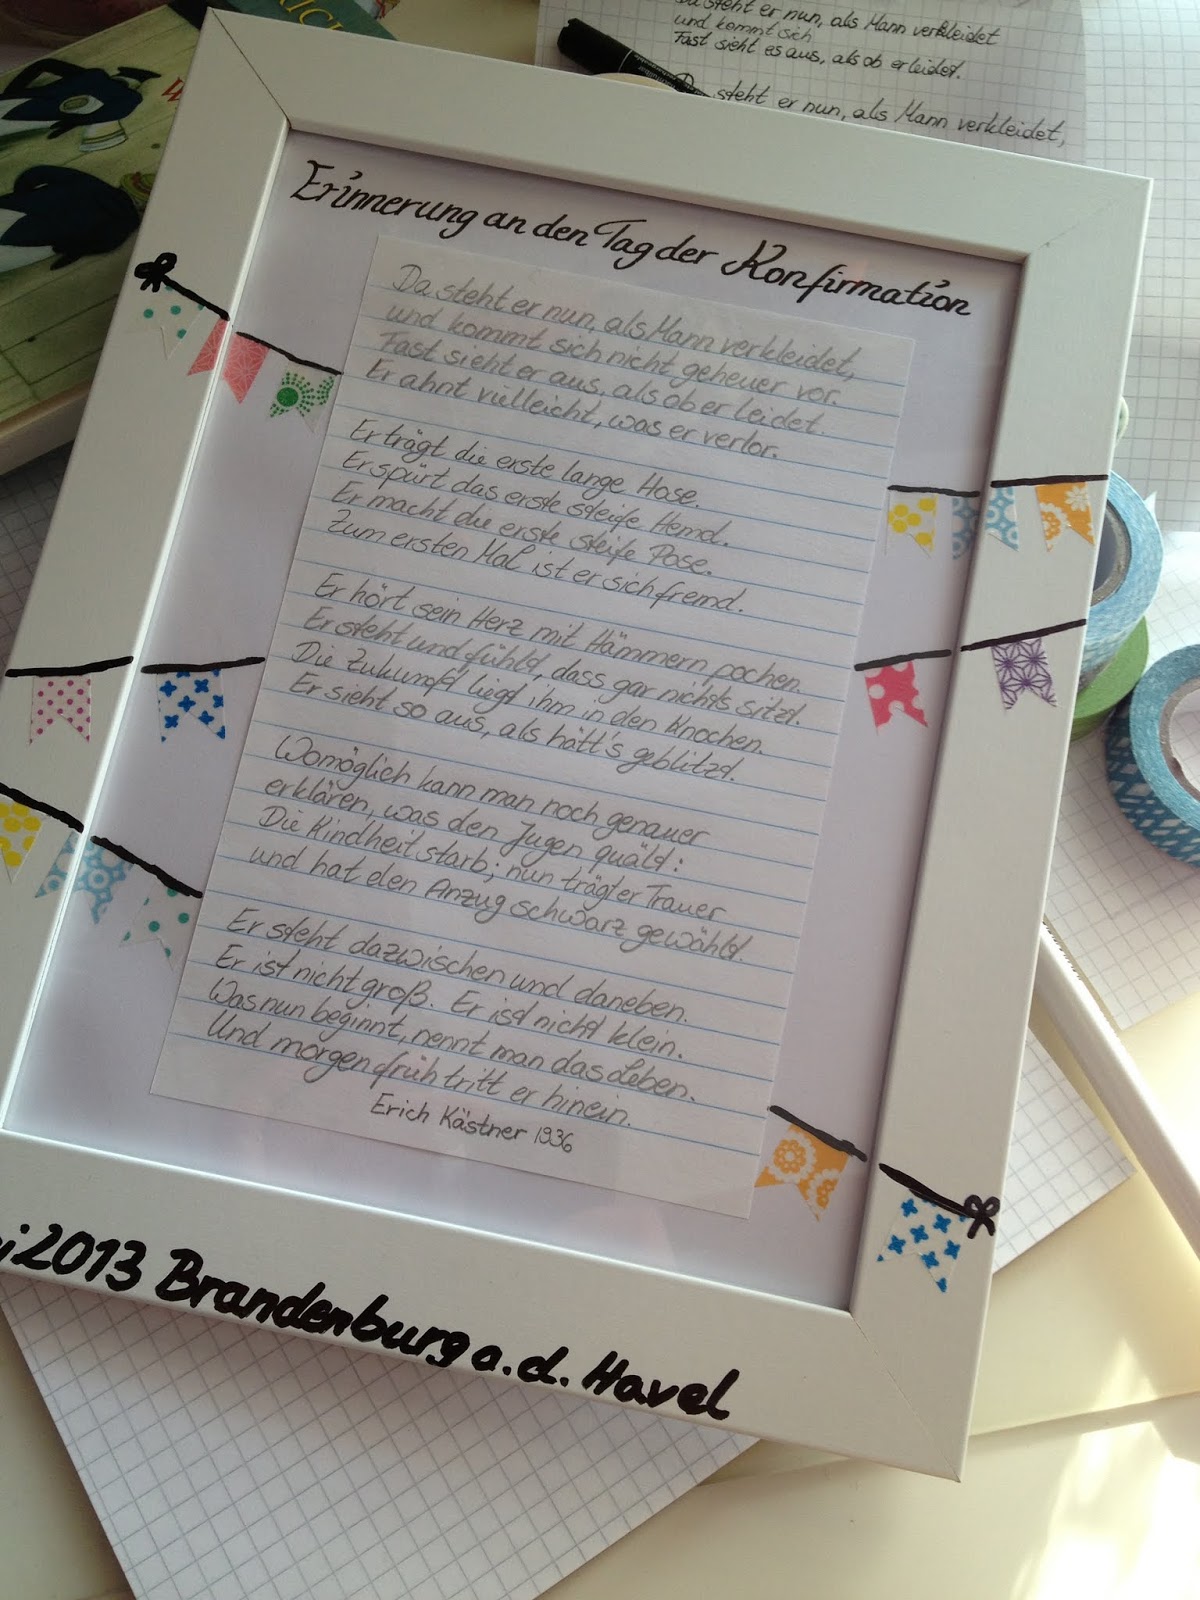 Da steht er nun, als Mann verkleidet
und kommt sich
Fast sieht es aus, als ob er leidet.
steht er nun, als Mann verkleidet,
Erinnerung an den Tag der Konfirmation
Da steht er nun, als Mann verkleidet,
und kommt sich nicht geheuer vor.
Fast sieht er aus, als ob er leidet.
Er ahnt vielleicht, was er verlor.
Er trägt die erste lange Hose.
Er spürt das erste steife Hemd.
Er macht die erste steife Pose.
Zum ersten Mal ist er sich fremd.
Er hört sein Herz mit Hämmern pochen.
Er steht und fühlt, dass gar nichts sitzt.
Die Zukunft liegt ihm in den Knochen.
Er sieht so aus, als hätt's geblitzt.
Womöglich kann man noch genauer
erklären, was den Jugen quält:
Die Kindheit starb; nun trägt er Trauer
und hat den Anzug schwarz gewählt.
Er steht dazwischen und daneben.
Er ist nicht groß. Er ist nicht klein.
Was nun beginnt, nennt man das Leben.
Und morgen früh tritt er hinein.
Erich Kästner 1936
2013 Brandenburg a.d. Havel